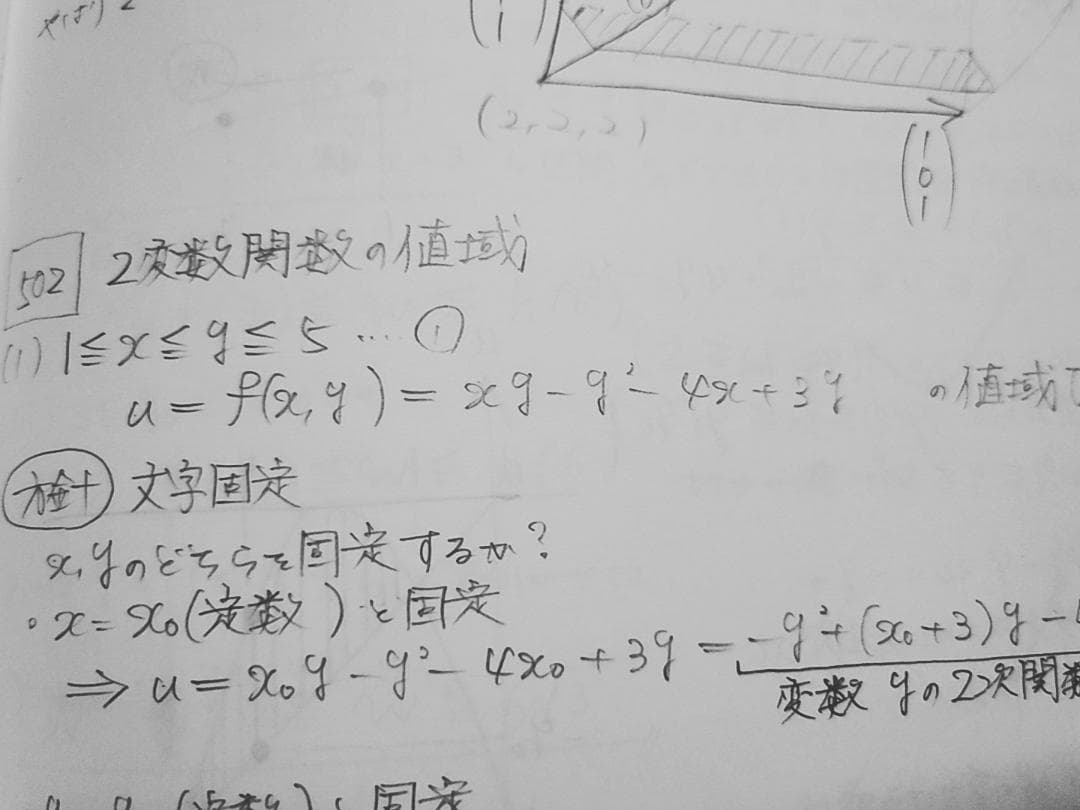 1
(2,2,2)
1
0
1
502 2変数関数の値域
(1) 1≦x≦y≦5 … ①
u = f(x, y) = xy - y² - 4x + 3y の値域
方針 文字固定
x, yのどちらを固定するか?
・x = x₀(定数)と固定
⇒ u = x₀y - y² - 4x₀ + 3y = -y² + (x₀+3)y -
変数 yの2次関数
(定数)と固定